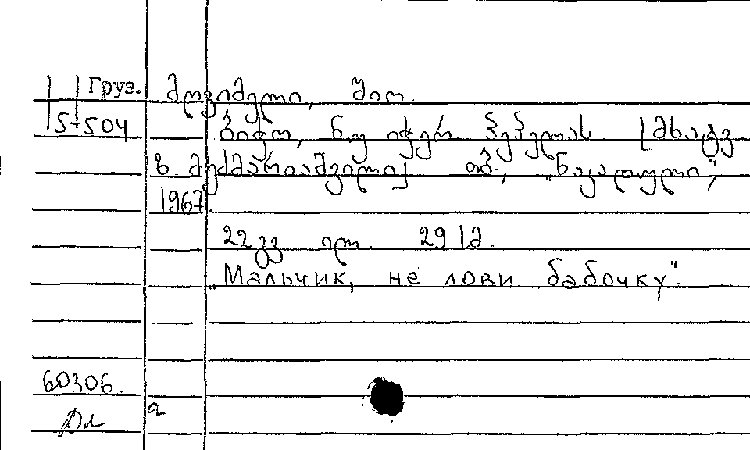 Груз. მღვიმელი, შიო.
5-504 ბიჭო, ნუ იჭერ პეპელას [მხატვ.
ზ. მეძმარიაშვილი] თბ., „ნაკადული",
1967.
22 გვ. ილ. 29 სმ.
„Мальчик, не лови бабочку".
60306.